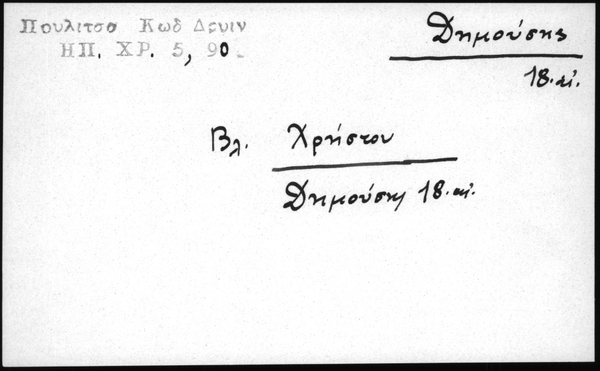 Πουλιτσα Κωδ Δρυιν
ΗΠ. ΧΡ. 5, 90.
Δημούσης
18. αἰ.
Βλ. Χρήστου
Δημούση 18. αἰ.